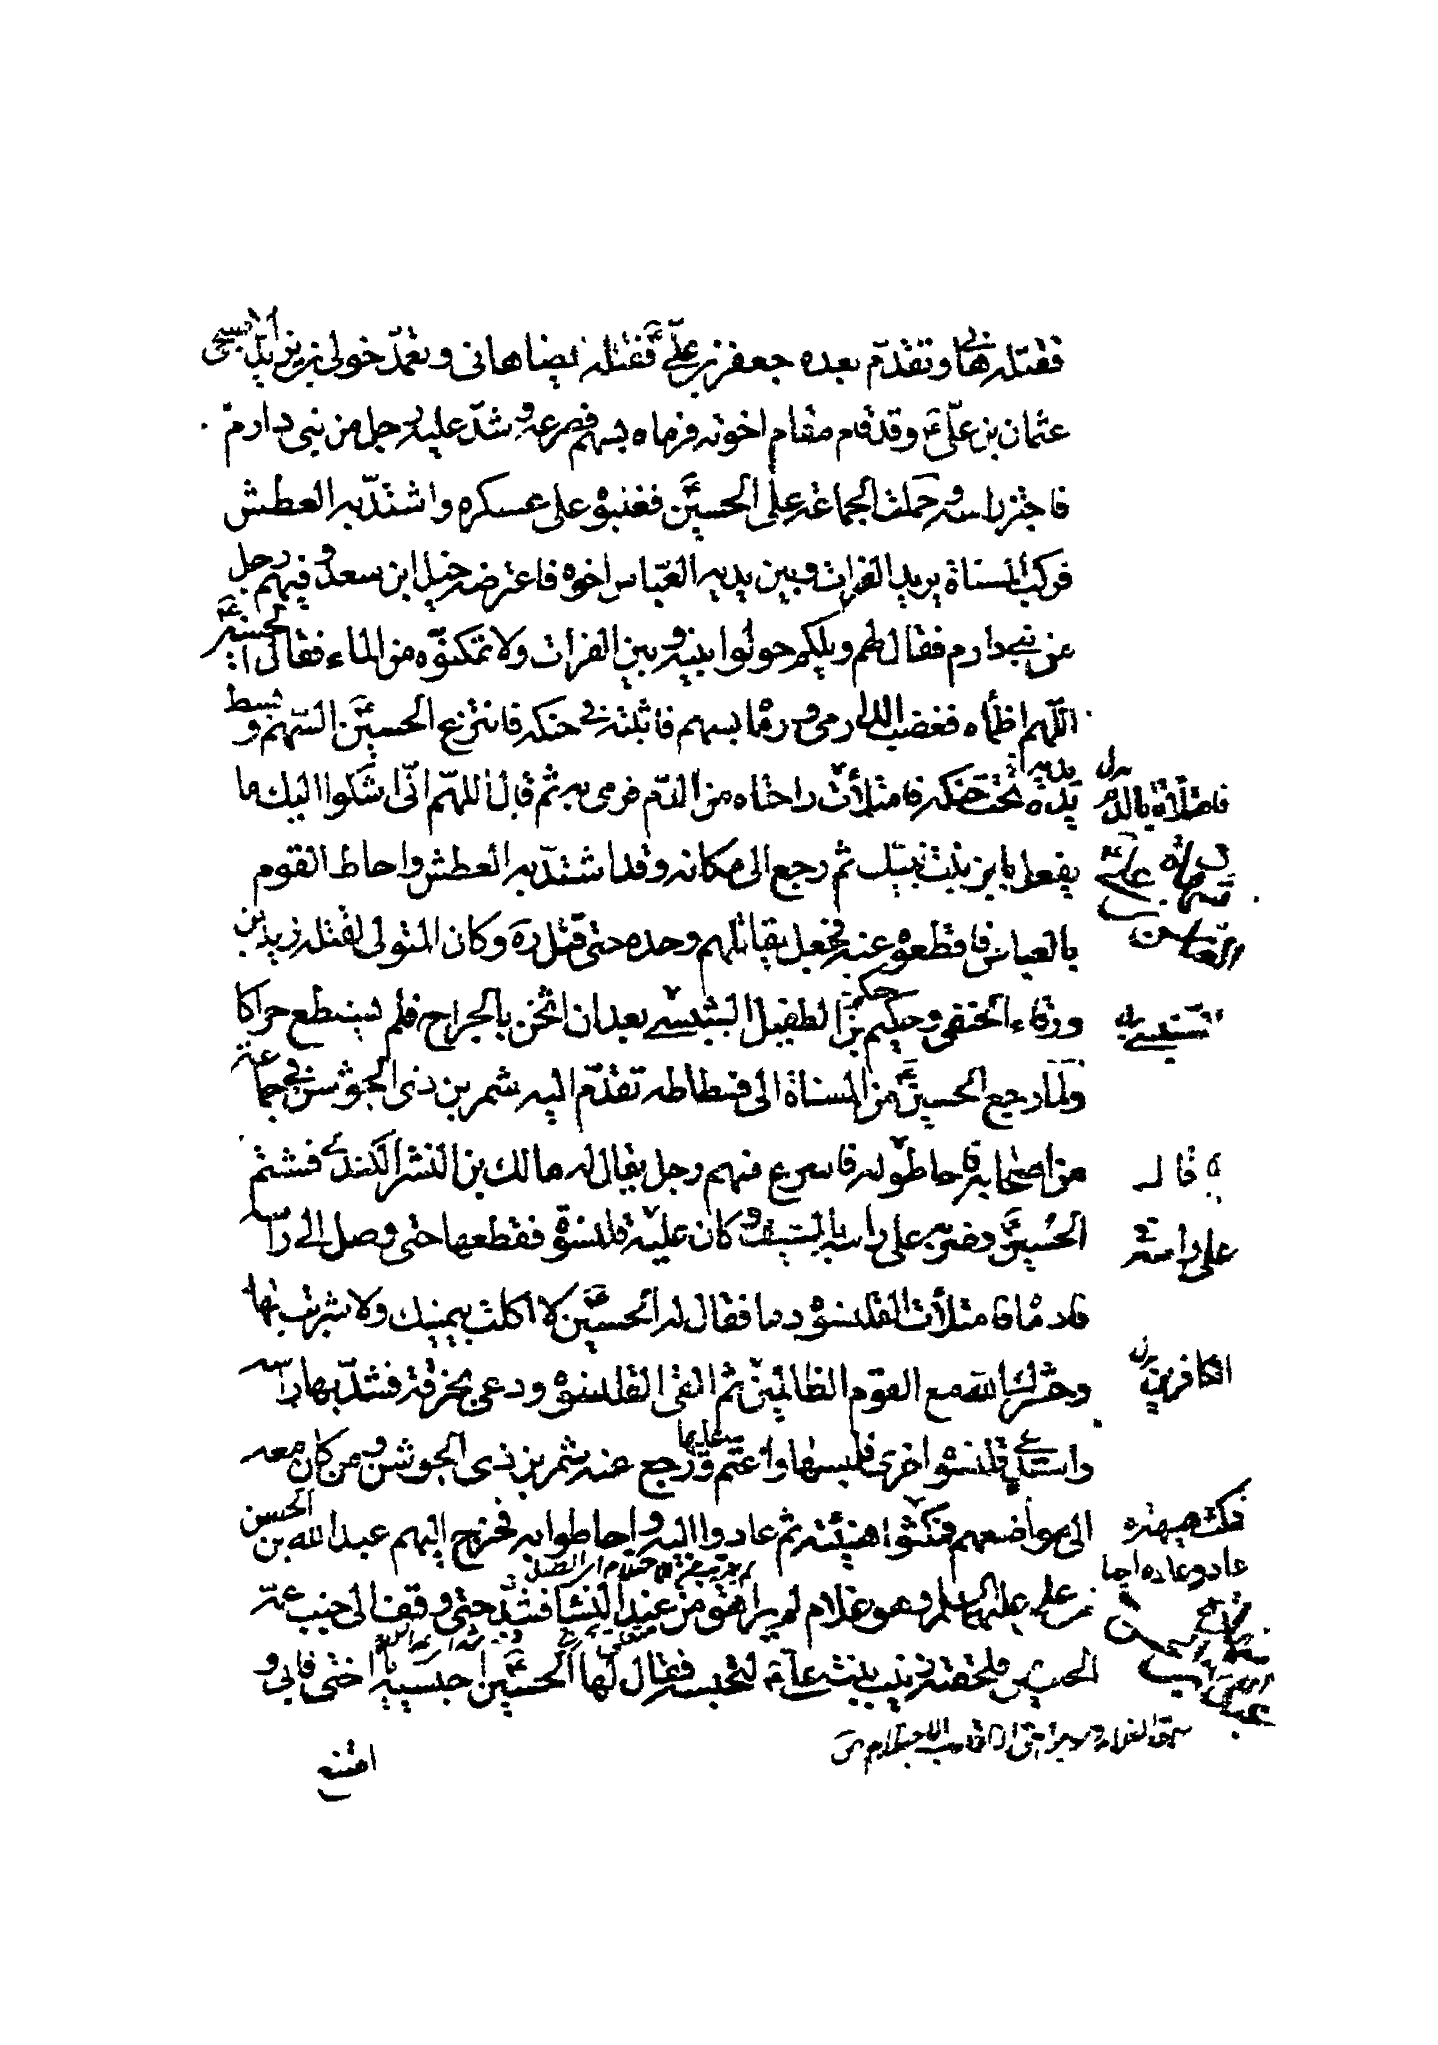 فقتله هانى وتقدم بعده جعفر بن على ع فقتله ايضا هانى وتعمد خولى بن يزيد الاصبحى
عثمان بن على ع وقد قام مقام اخوته فرماه بسهم فصرعه وشد عليه رجل من بنى دارم
فاجتز راسه وحملت الجماعة على الحسين ع فغلبوه على عسكره واشتد به العطش
فركب المسناة يريد الفرات وبين يديه العباس اخوه فاعترضه خيل ابن سعد وفيهم رجل
من بنى دارم فقال لهم ويلكم حولوا بينه وبين الفرات ولا تمكنوه من الماء فقال الحسين ع
اللهم اظمأه فغضب الدارمى ورماه بسهم فاثبته فى حنكه فانتزع الحسين ع السهم وبسط
يده تحت حنكه فامتلأت راحتاه من الدم فرمى به ثم قال اللهم انى اشكوا اليك ما
يفعل بابن بنت نبيك ثم رجع الى مكانه وقد اشتد به العطش واحاط القوم
بالعباس فاقتطعوه عنه فجعل يقاتلهم وحده حتى قتل ره وكان المتولى لقتله زيد بن
ورقاء الحنفى وحكيم بن الطفيل السنبسى بعد ان اثخن بالجراح فلم يستطع حراكا
ولما رجع الحسين ع من المسناة الى فسطاطه تقدم اليه شمر بن ذى الجوشن فى جماعة
من اصحابه فاحاطوا به فاسرع منهم رجل يقال له مالك بن النشر الكندى فشتم
الحسين ع وضربه على راسه بالسيف وكان عليه قلنسوة فقطعها حتى وصل الى راسه
فادماه فامتلأت القلنسوة دما فقال له الحسين ع لا اكلت بيمينك ولا شربت بها
وحشرك الله مع القوم الظالمين ثم القى القلنسوة ودعى بخرقة فشد بها راسه
واستدعى قلنسوة اخرى فلبسها واعتم عليها ورجع عنه شمر بن ذى الجوشن ومن كان معه
الى مواضعهم فمكثوا هنيئة ثم عادوا اليه واحاطوا به فخرج اليهم عبد الله بن الحسن
بن على عليهما السلم وهو غلام لم يراهق من عند النساء فشد حتى وقف الى جنب عمه
الحسين فلحقته زينب بنت على ع لتحبسه فقال لها الحسين ع احبسيه يا اختى فابى و
امتنع
فامتلأت بالدم
قال
على راسه
الكافرين